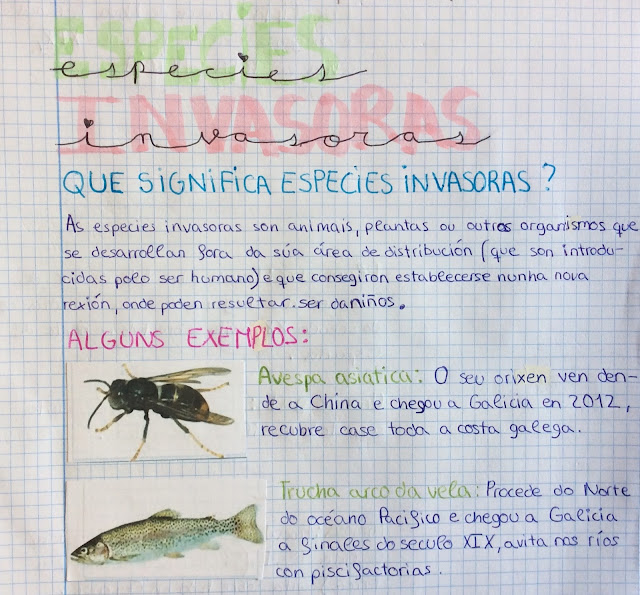 ESPECIES
especies
INVASORAS
invasoras
QUE SIGNIFICA ESPECIES INVASORAS ?
As especies invasoras son animais, plantas ou outros organismos que
se desarrollan fora da súa área de distribución (que son introdu-
cidas polo ser humano) e que consegiron establecerse nunha nova
rexión, onde poden resultar ser daniños.
ALGUNS EXEMPLOS:
Avespa asiatica: O seu orixen ven den-
de a China e chegou a Galicia en 2012,
recubre case toda a costa galega.
Trucha arco da vela: Procede do Norte
do océano Pacifico e chegou a Galicia
a finales do seculo XIX, avita nos ríos
con piscifactorias.